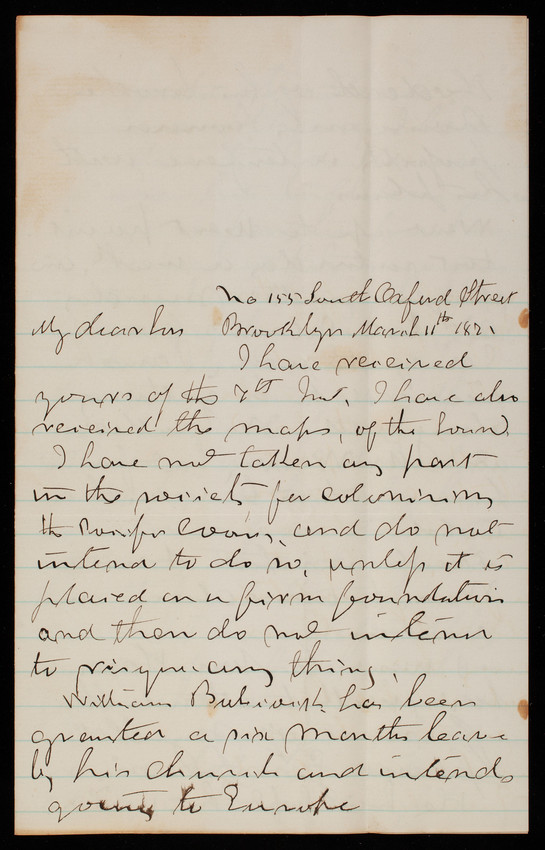 No 155 South Oxford Street
My dear Son Brooklyn March 11th 1871
I have received
yours of the 7th Inst, I have also
received the maps, of the Sound.
I have not taken any part
in the society for colonising
the Pacific and do not
intend to do so, unless it is
placed on a firm foundation
and then do not intend
to risque any thing,
William has been
granted a six months leave
by his church and intends
going to Europe